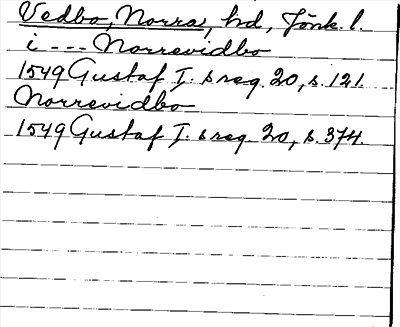 Vedbo, Norra, hd, Jönk. l.
i --- Norrevidbo
1549 Gustaf I. s reg. 20, s. 121.
Norrevidbo
1549 Gustaf I. s reg. 20, s. 374.